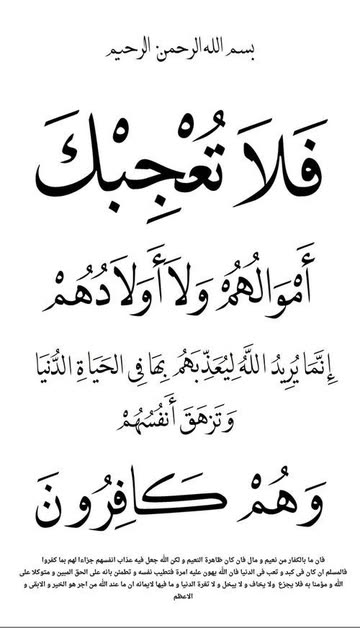 بسم الله الرحمن الرحيم
فَلَا تُعْجِبْكَ
أَمْوَالُهُمْ وَلَا أَوْلَادُهُمْ
إِنَّمَا يُرِيدُ اللَّهُ لِيُعَذِّبَهُم بِهَا فِي الْحَيَاةِ الدُّنْيَا
وَتَزْهَقَ أَنفُسُهُمْ
وَهُمْ كَافِرُونَ
فان ما بالكفار من نعيم و مال فان كان ظاهرة النعيم و لكن الله جعل فيه عذاب انفسهم جزاءا لهم بما كفروا
فالمسلم ان كان فى كبد و تعب فى الدنيا فان الله يهون عليه امرة فتطيب نفسه و تطمئن بانه على الحق المبين و متوكلا على
الله و مؤمنا به فلا يجزع ولا يخاف و لا يبخل و لا تغرة الدنيا و ما فيها لايمانه ان ما عند الله من اجر هو الخير و الابقى و
الاعظم